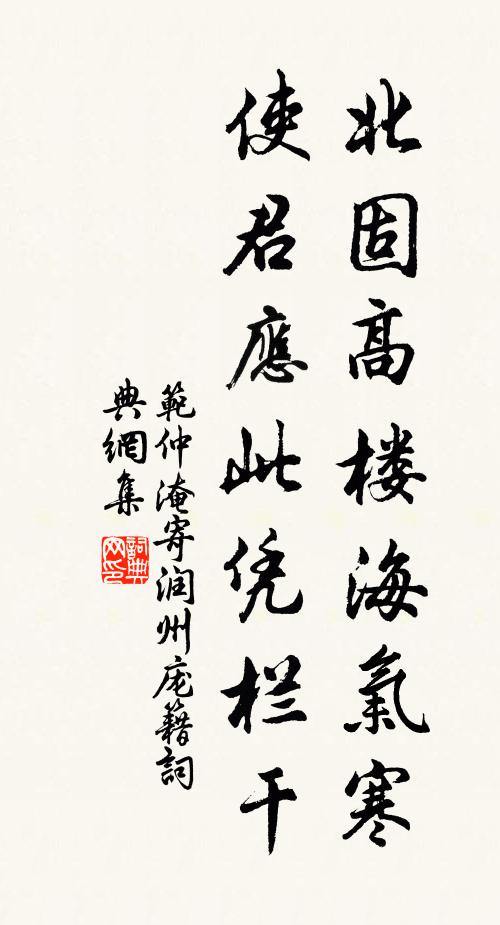 北固高楼海氣寒
使君應此凭栏干
範仲淹寄润州庞籍詞
典網集
詞典网印